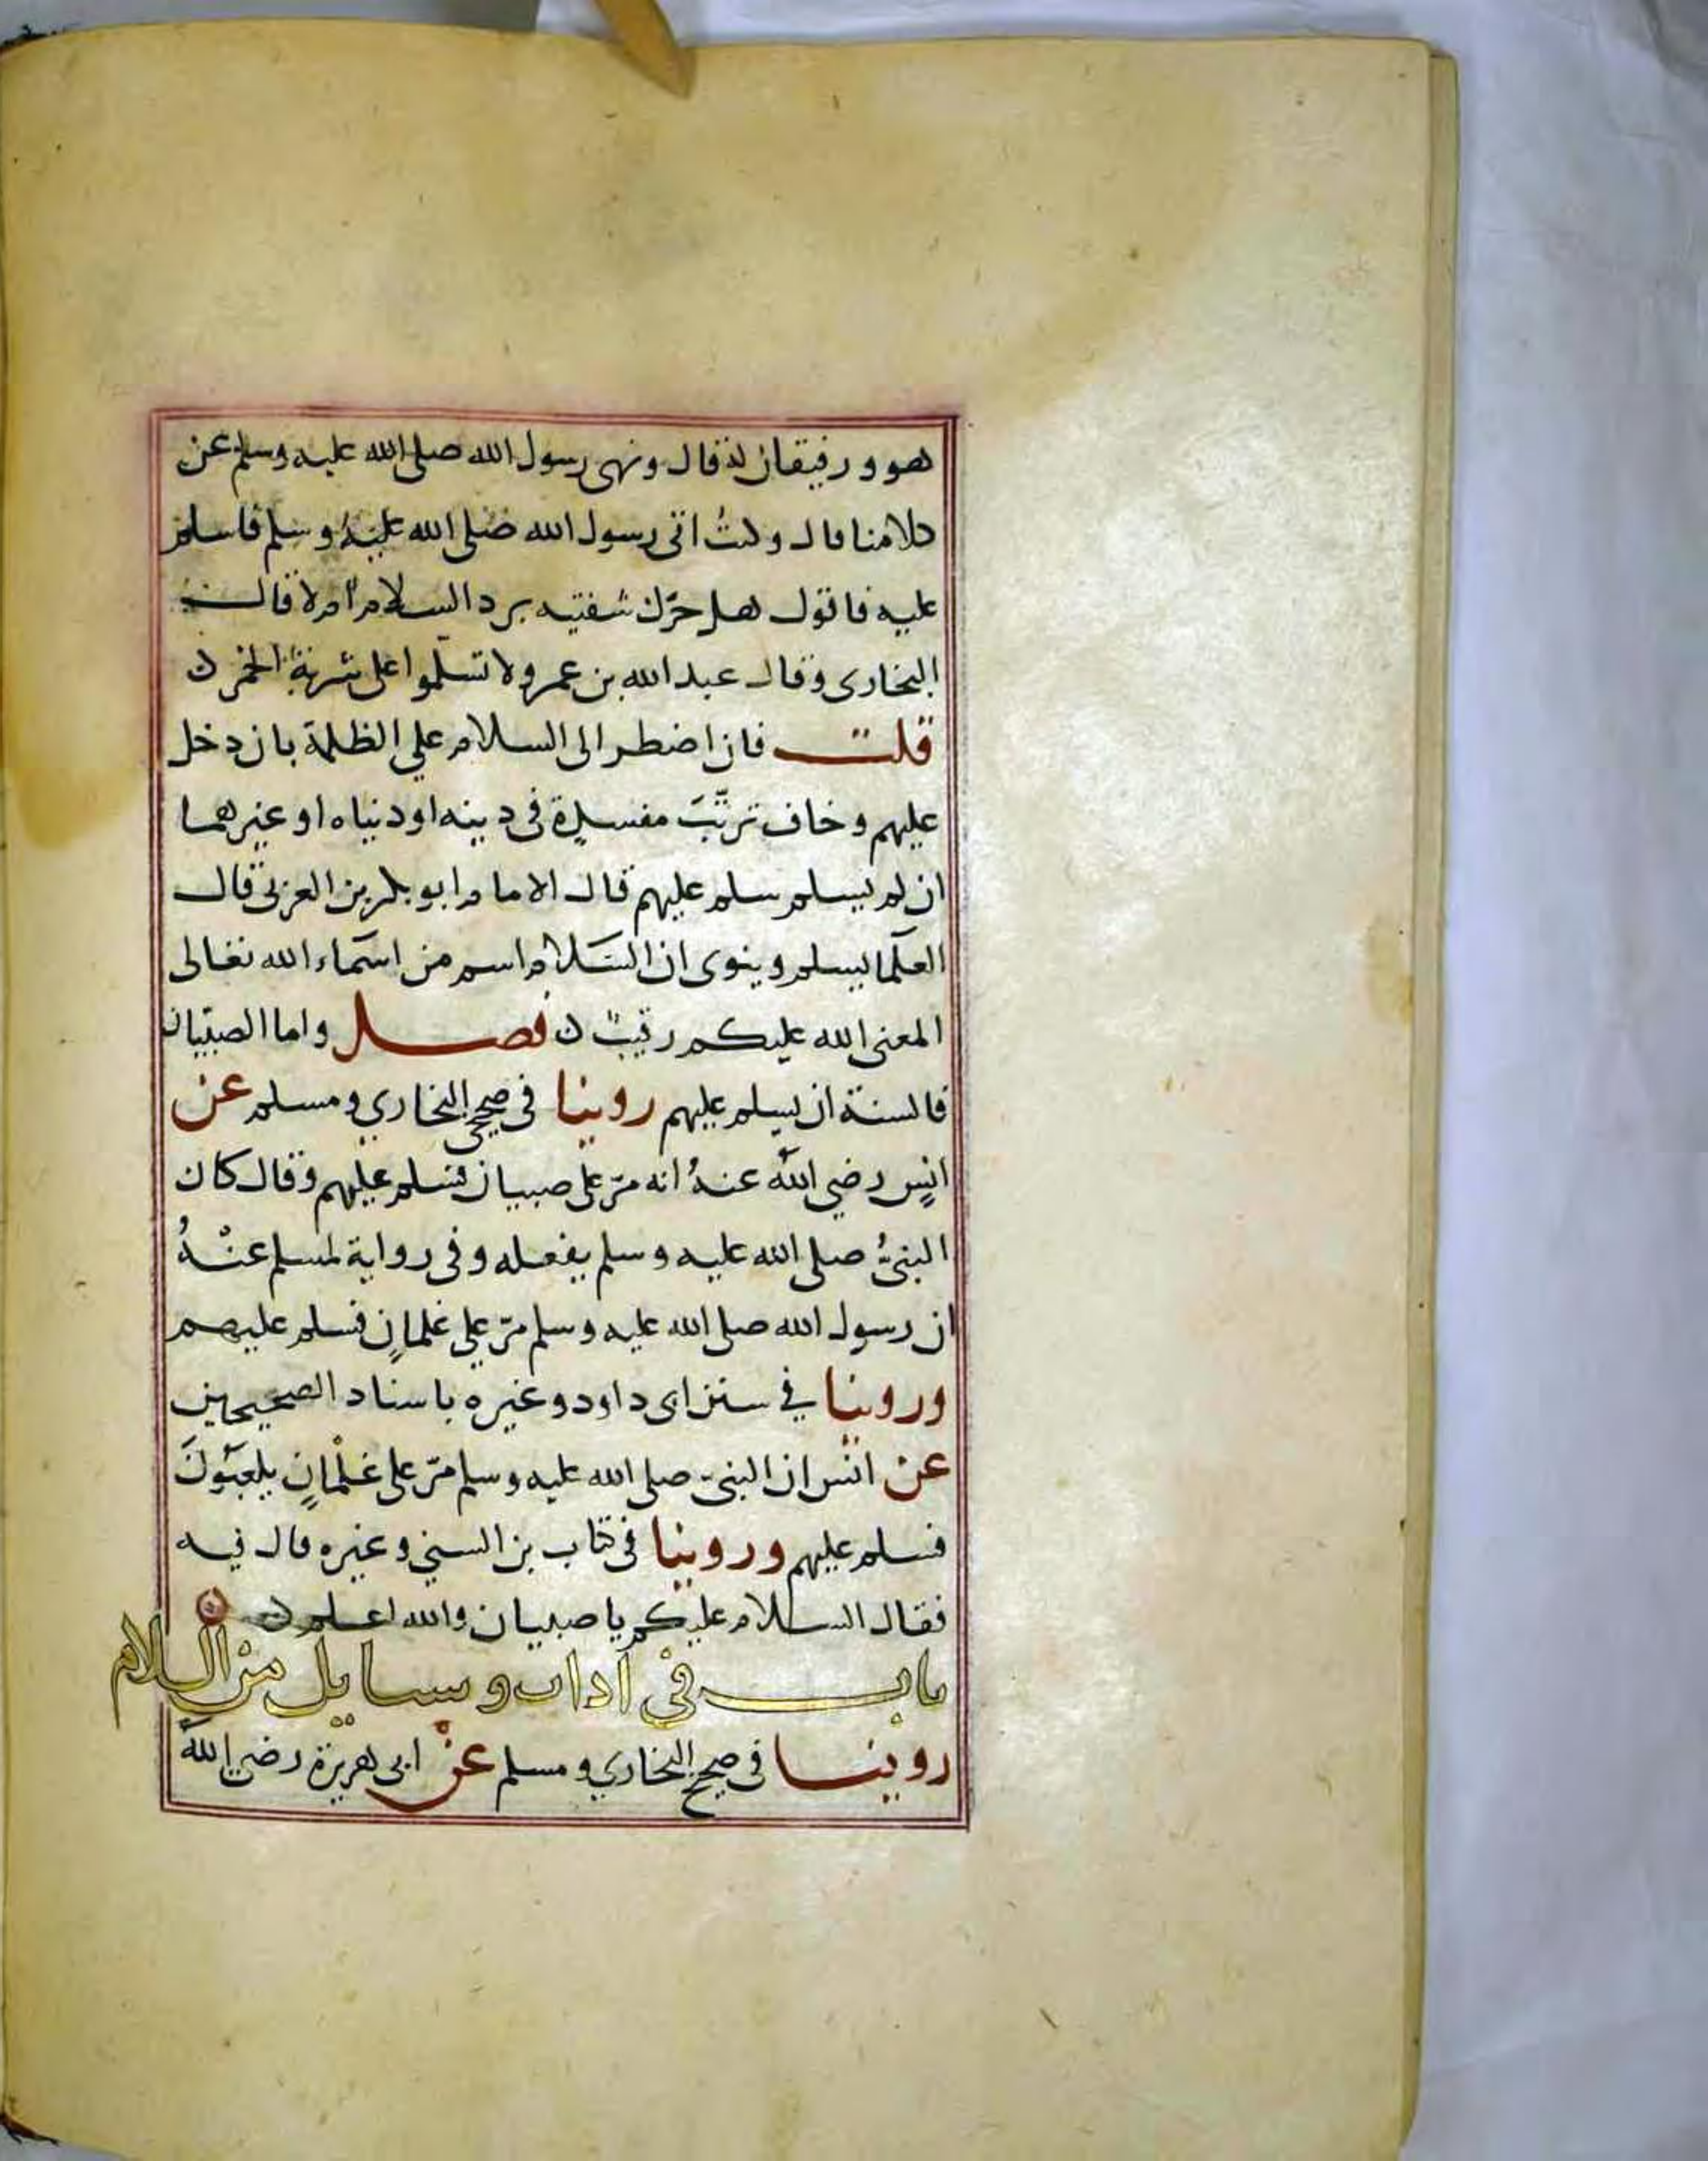 هو ورفيقان له قال ونهى رسول الله صلى الله عليه وسلم عن
كلامنا قال وكنتُ اتى رسول الله صَلى الله عليهُ وسلم فاسلم
عليه فاقول هل حرّك شفتيه برد السلام اَم لا قالــــ
البخارى وقال عبد الله بن عمرو لا تسلّموا على شربة الخمر ن
قلت فان اضطر الى السلام على الظلمة بان دخل
عليهم وخاف ترتّبَ مفسدةٍ فى دينه او دنياه او غيرهما
ان لم يسلم سلم عليهم قال الامام ابو بكر بن العربى قال
العلما يسلم وينوى ان السَّلام اسم من اسماء الله تعالى
المعنى الله عليكم رقيبٌ ن فصل واما الصبيان
فالسنة ان يسلم عليهم روينا فى صحيحى البخاري ومسلم عن
انسٍ رضي اللّه عنهُ انه مرّ على صبيان فسلم عليهم وقال كان
النبىُّ صلى الله عليه وسلم يفعله وفى رواية لمسلم عنْهُ
ان رسول الله صلى الله عليه وسلم مرّ على غلمانٍ فسلم عليهم
وروينا في سنن ابى داود وغيره باسناد الصحيحين
عن انس ان النبىّ صلى الله عليه وسلم مرّ على غلْمانٍ يلعبَونَ
فسلم عليهم وروينا فى كتاب بن السني وغيره قال فيه
فقال السلام عليكم يا صبيان والله اعلم ن
باب فى اداب ومسايل من السلام
روينا فى صحيح البخاري ومسلم عنْ ابى هريرة رضى اللّه